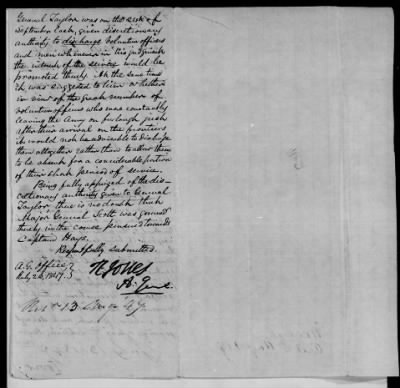 General Taylor was on the
September last, given discretionary
authority to discharge volunteer officers
and men whenever in his judgment
the interest of the service would be
promoted thereby. At the same time
it was suggested to him whether
in view of the great number of
volunteer officers who were constantly
leaving the Army on furlough just
after their arrival on the frontiers
it would not be advisable to discharge
them altogether rather than to allow them
to be absent for a considerable portion
of their short period of service.
Being fully apprized of the dis-
cretionary authority given to General
Taylor, there is no doubt that
Major General Scott was governed
thereby in the course pursued towards
Captain Hays.
Respectfully submitted.
A.G. Office,
July 1847.
R. Jones
A. Gen.
13 Aug 47